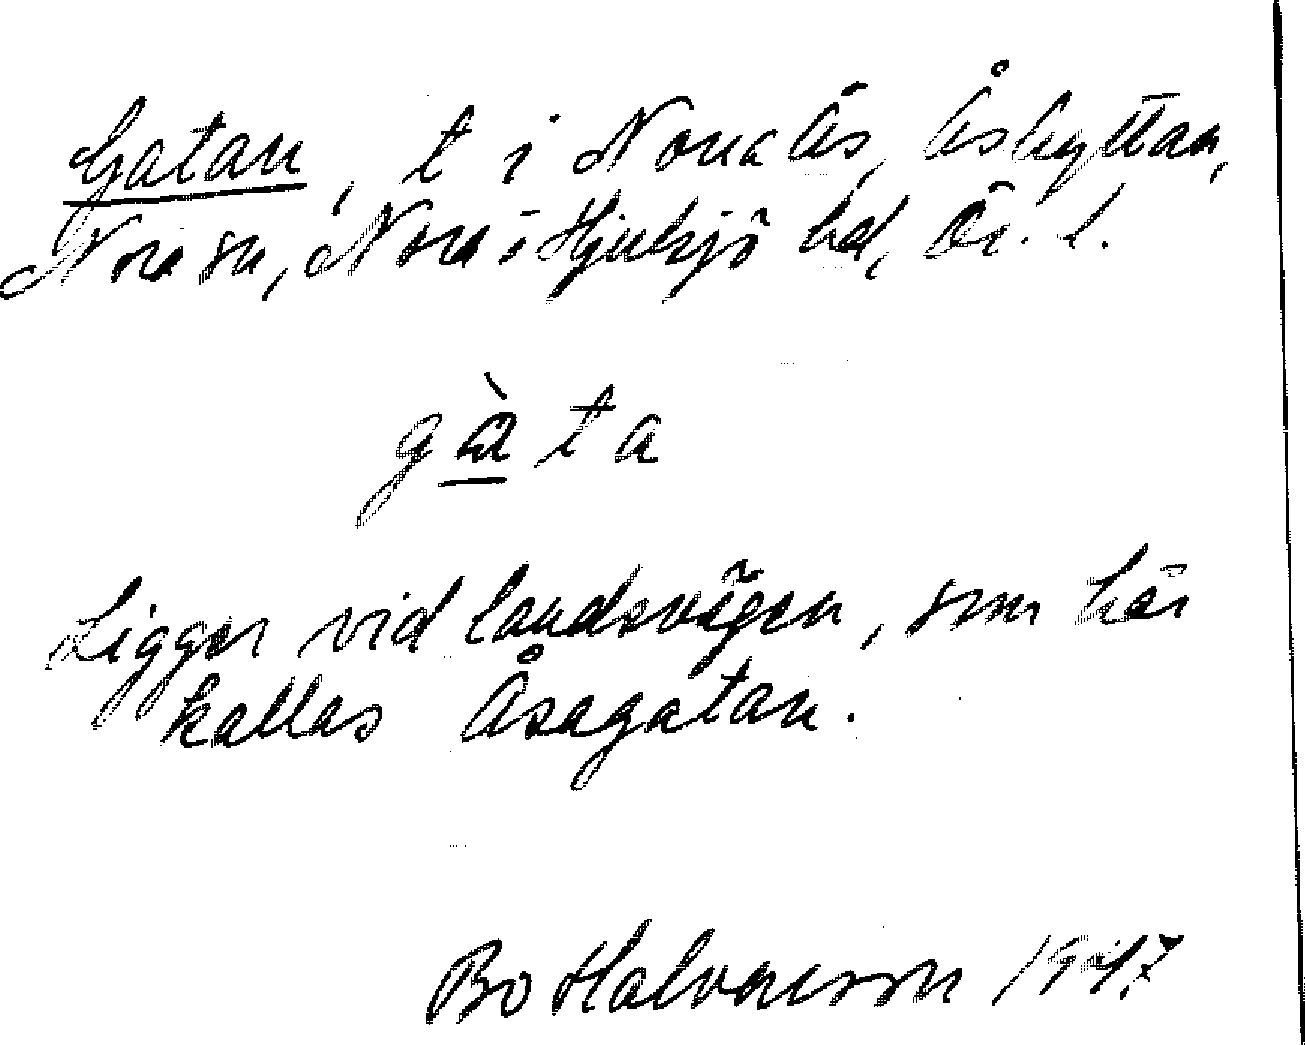 Gatan, t i Norra Ås, Åshyttan,
Nora sn, Nora o Hjulsjö hd, Ör. l.
gàta
Ligger vid landsvägen, som här
kallas Åsagatan.
Bo Halvarsson 1947